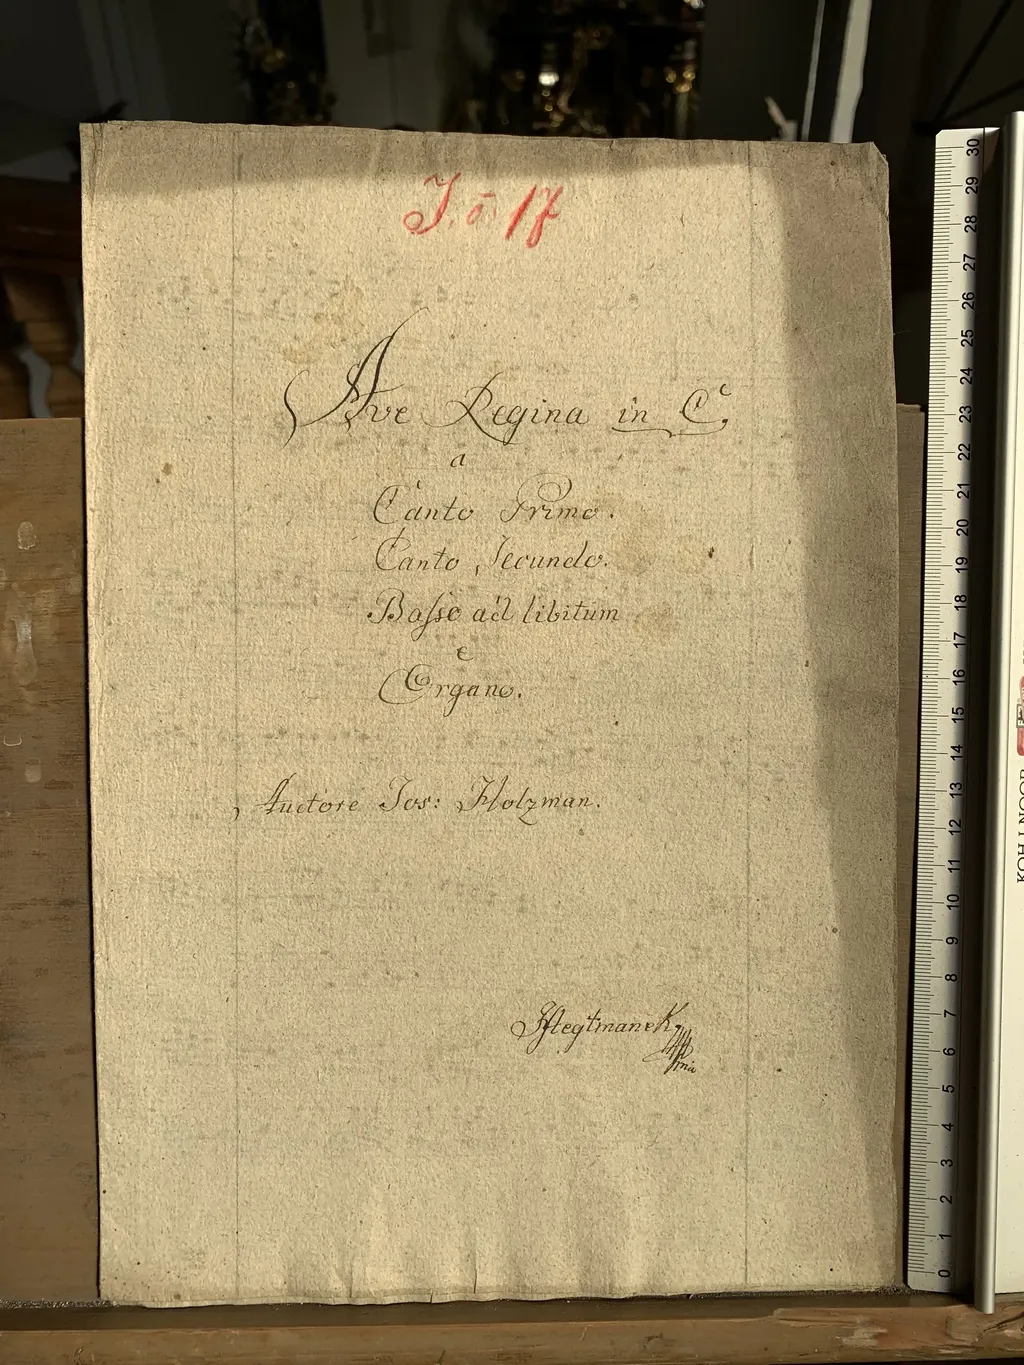 Ave Regina in C.
a
Canto Primo.
Canto Secundo.
Basso ad libitum
e
Organo.
Auctore Jos: Holzman.
mia
30
29
28
27
26
25
24
23
22
21
20
19
18
17
16
15
14
13
12
11
10
9
8
7
6
5
4
3
2
1
0
KOH-I-NOOR